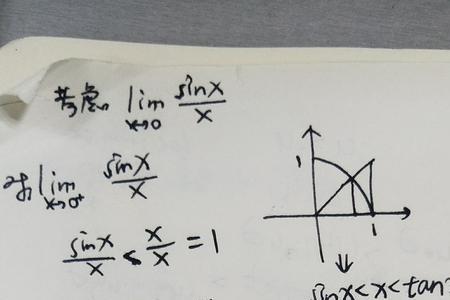 考虑 lim x→0 sinx/x
对 lim x→0⁺ sinx/x
sinx/x < x/x = 1
1
1
⇓
sinx < x < tan